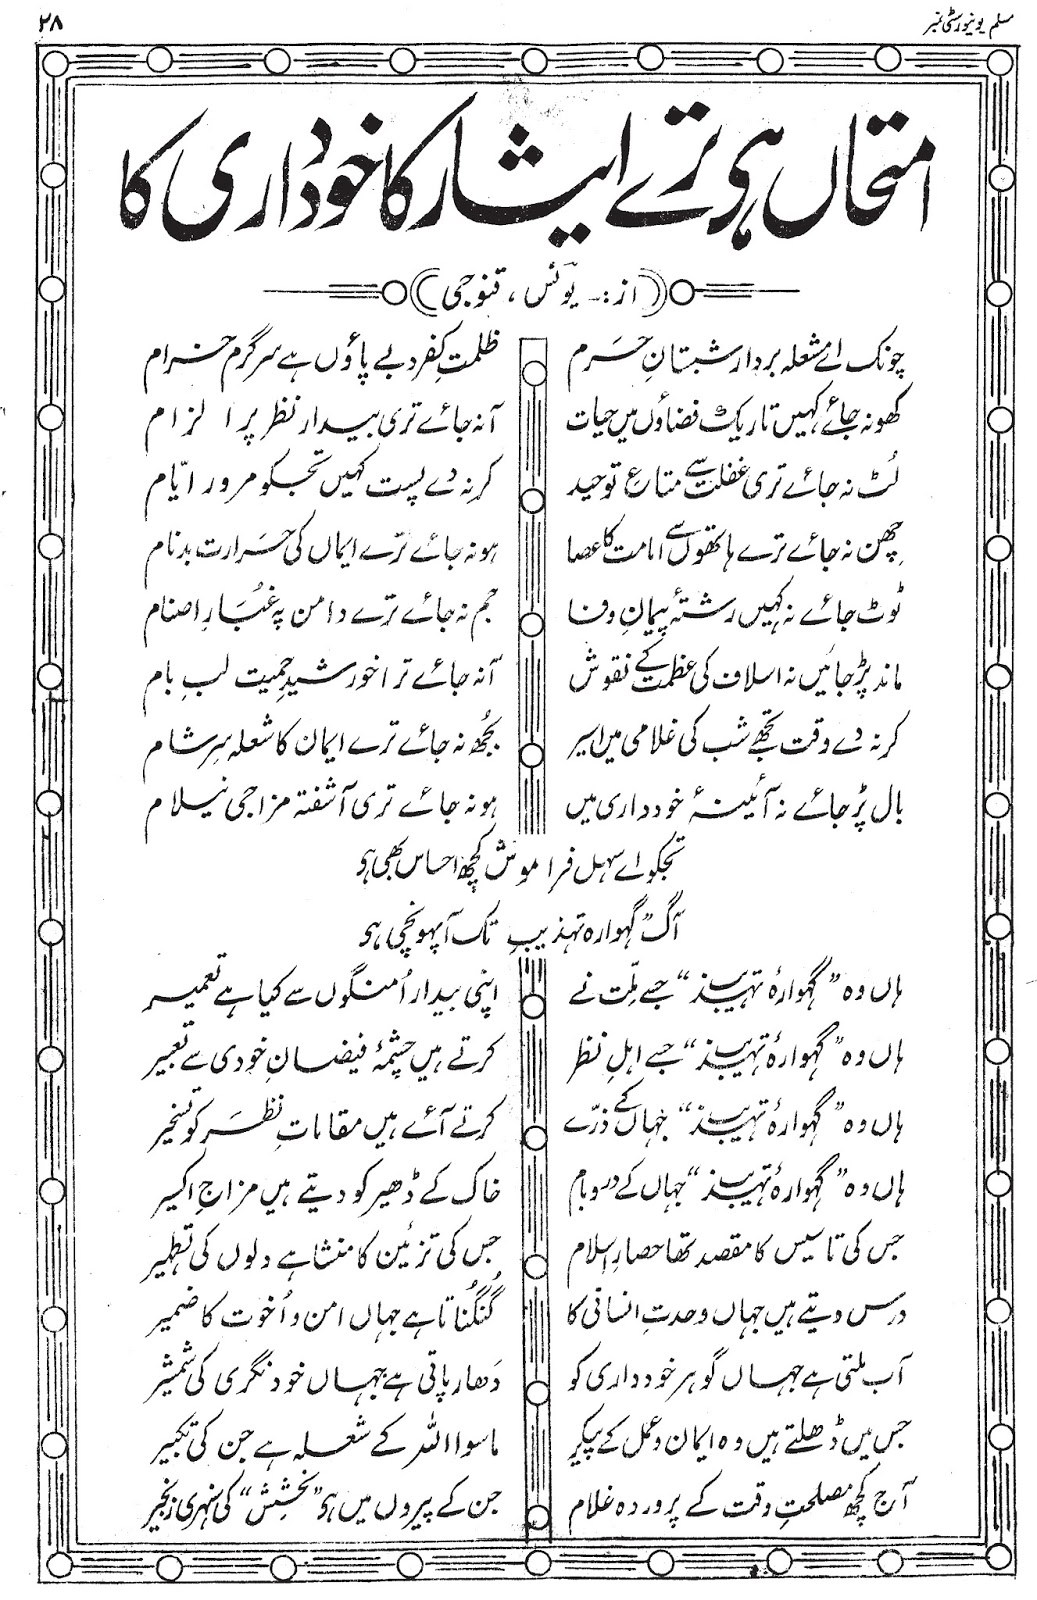 مسلم یونیورسٹی نمبر
۲۸
امتحاں ہی ترے ایثار کا خودداری کا
(از:۔ یونس، قنوجی)
چونک اے مشعلہ بردار شبستانِ حرم
ظلمتِ کفر دبے پاؤں ہے سرگرم خرام
کھو نہ جائے کہیں تاریک فضاؤں میں حیات
آنہ جائے تری بیدار نظر پر الزام
لُٹ نہ جائے تری غفلت سے متاع توحید
کر نہ دے پست کہیں تجکو مرور ایّام
چھِن نہ جائے ترے ہاتھوں سے امامت کا عصا
ہو نہ جائے ترے ایماں کی حرارت بدنام
ٹوٹ جائے نہ کہیں رشتۂ پیمانِ وفا
جم نہ جائے ترے دامن پہ غُبارِ اصنام
ماند پڑ جائیں نہ اسلاف کی عظمت کے نقوش
آنہ جائے ترا خورشیدِ حمیت لبِ بام
کر نہ دے وقت تجھے شب کی غلامی میں اسیر
بجُھ نہ جائے ترے ایمان کا شعلہ سرِشام
بال پڑ جائے نہ آئینۂ خودداری میں
ہو نہ جائے تری آشفتہ مزاجی نیلام
تجکو اے سہل فراموش کچھ احساس بھی ہو
آگ "گہوارہ تہذیب تک آپہونچی ہو
ہاں وہ "گہوارۂ تہذیب" جسے ملّت نے
اپنی بیدار اُمنگوں سے کیا ہے تعمیر
ہاں وہ "گہوارۂ تہذیب" جسے اہلِ نظر
کرتے ہیں چشمۂ فیضانِ خودی سے تعبیر
ہاں وہ "گہوارۂ تہذیب" جہاں کے ذرّے
کرتے آئے ہیں مقاماتِ نظر کو تسخیر
ہاں وہ "گہوارۂ تہذیب" جہاں کے در و بام
خاک کے ڈھیر کو دیتے ہیں مزاجِ اکسیر
جس کی تاسیس کا مقصد تھا حصارِ اسلام
جس کی تزئین کا منشا ہے دلوں کی تطہیر
درس دیتے ہیں جہاں وحدتِ انسانی کا
گُنگُناتا ہے جہاں امن و اُخوت کا ضمیر
آب ملتی ہے جہاں گوہر خودداری کو
دَھار پاتی ہے جہاں خود نگری کی شمشیر
جس میں ڈھلتے ہیں وہ ایمان و عمل کے پیکر
ماسوا اللّٰہ کے شعلہ ہے جن کی تکبیر
آج کچھ مصلحتِ وقت کے پروردہ غلام
جن کے پیروں میں ہو "بخشِش" کی سُنہری زنجیر